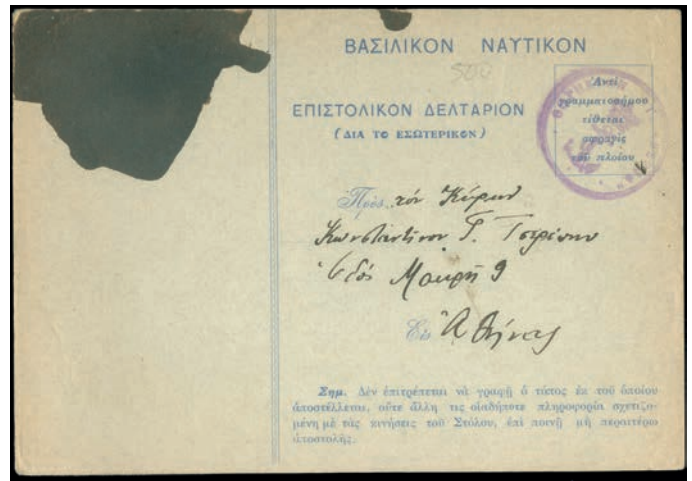 ΒΑΣΙΛΙΚΟΝ ΝΑΥΤΙΚΟΝ
500
ΕΠΙΣΤΟΛΙΚΟΝ ΔΕΛΤΑΡΙΟΝ
(ΔΙΑ ΤΟ ΕΣΩΤΕΡΙΚΟΝ)
Ἀντὶ
γραμματοσήμου
τίθεται
σφραγὶς
τοῦ πλοίου
Πρὸς τόν Κύριον
Κωνσταντίνον Γ.
Ὁδός Μακρῆ 9
Εἰς Ἀθήνας
Σημ. Δὲν ἐπιτρέπεται νὰ γραφῇ ὁ τόπος ἐκ τοῦ ὁποίου
ἀποστέλλεται, οὔτε ἄλλη τις οἱαδήποτε πληροφορία σχετιζο-
μένη μὲ τὰς κινήσεις τοῦ Στόλου, ἐπὶ ποινῇ μὴ περαιτέρω
ἀποστολῆς.